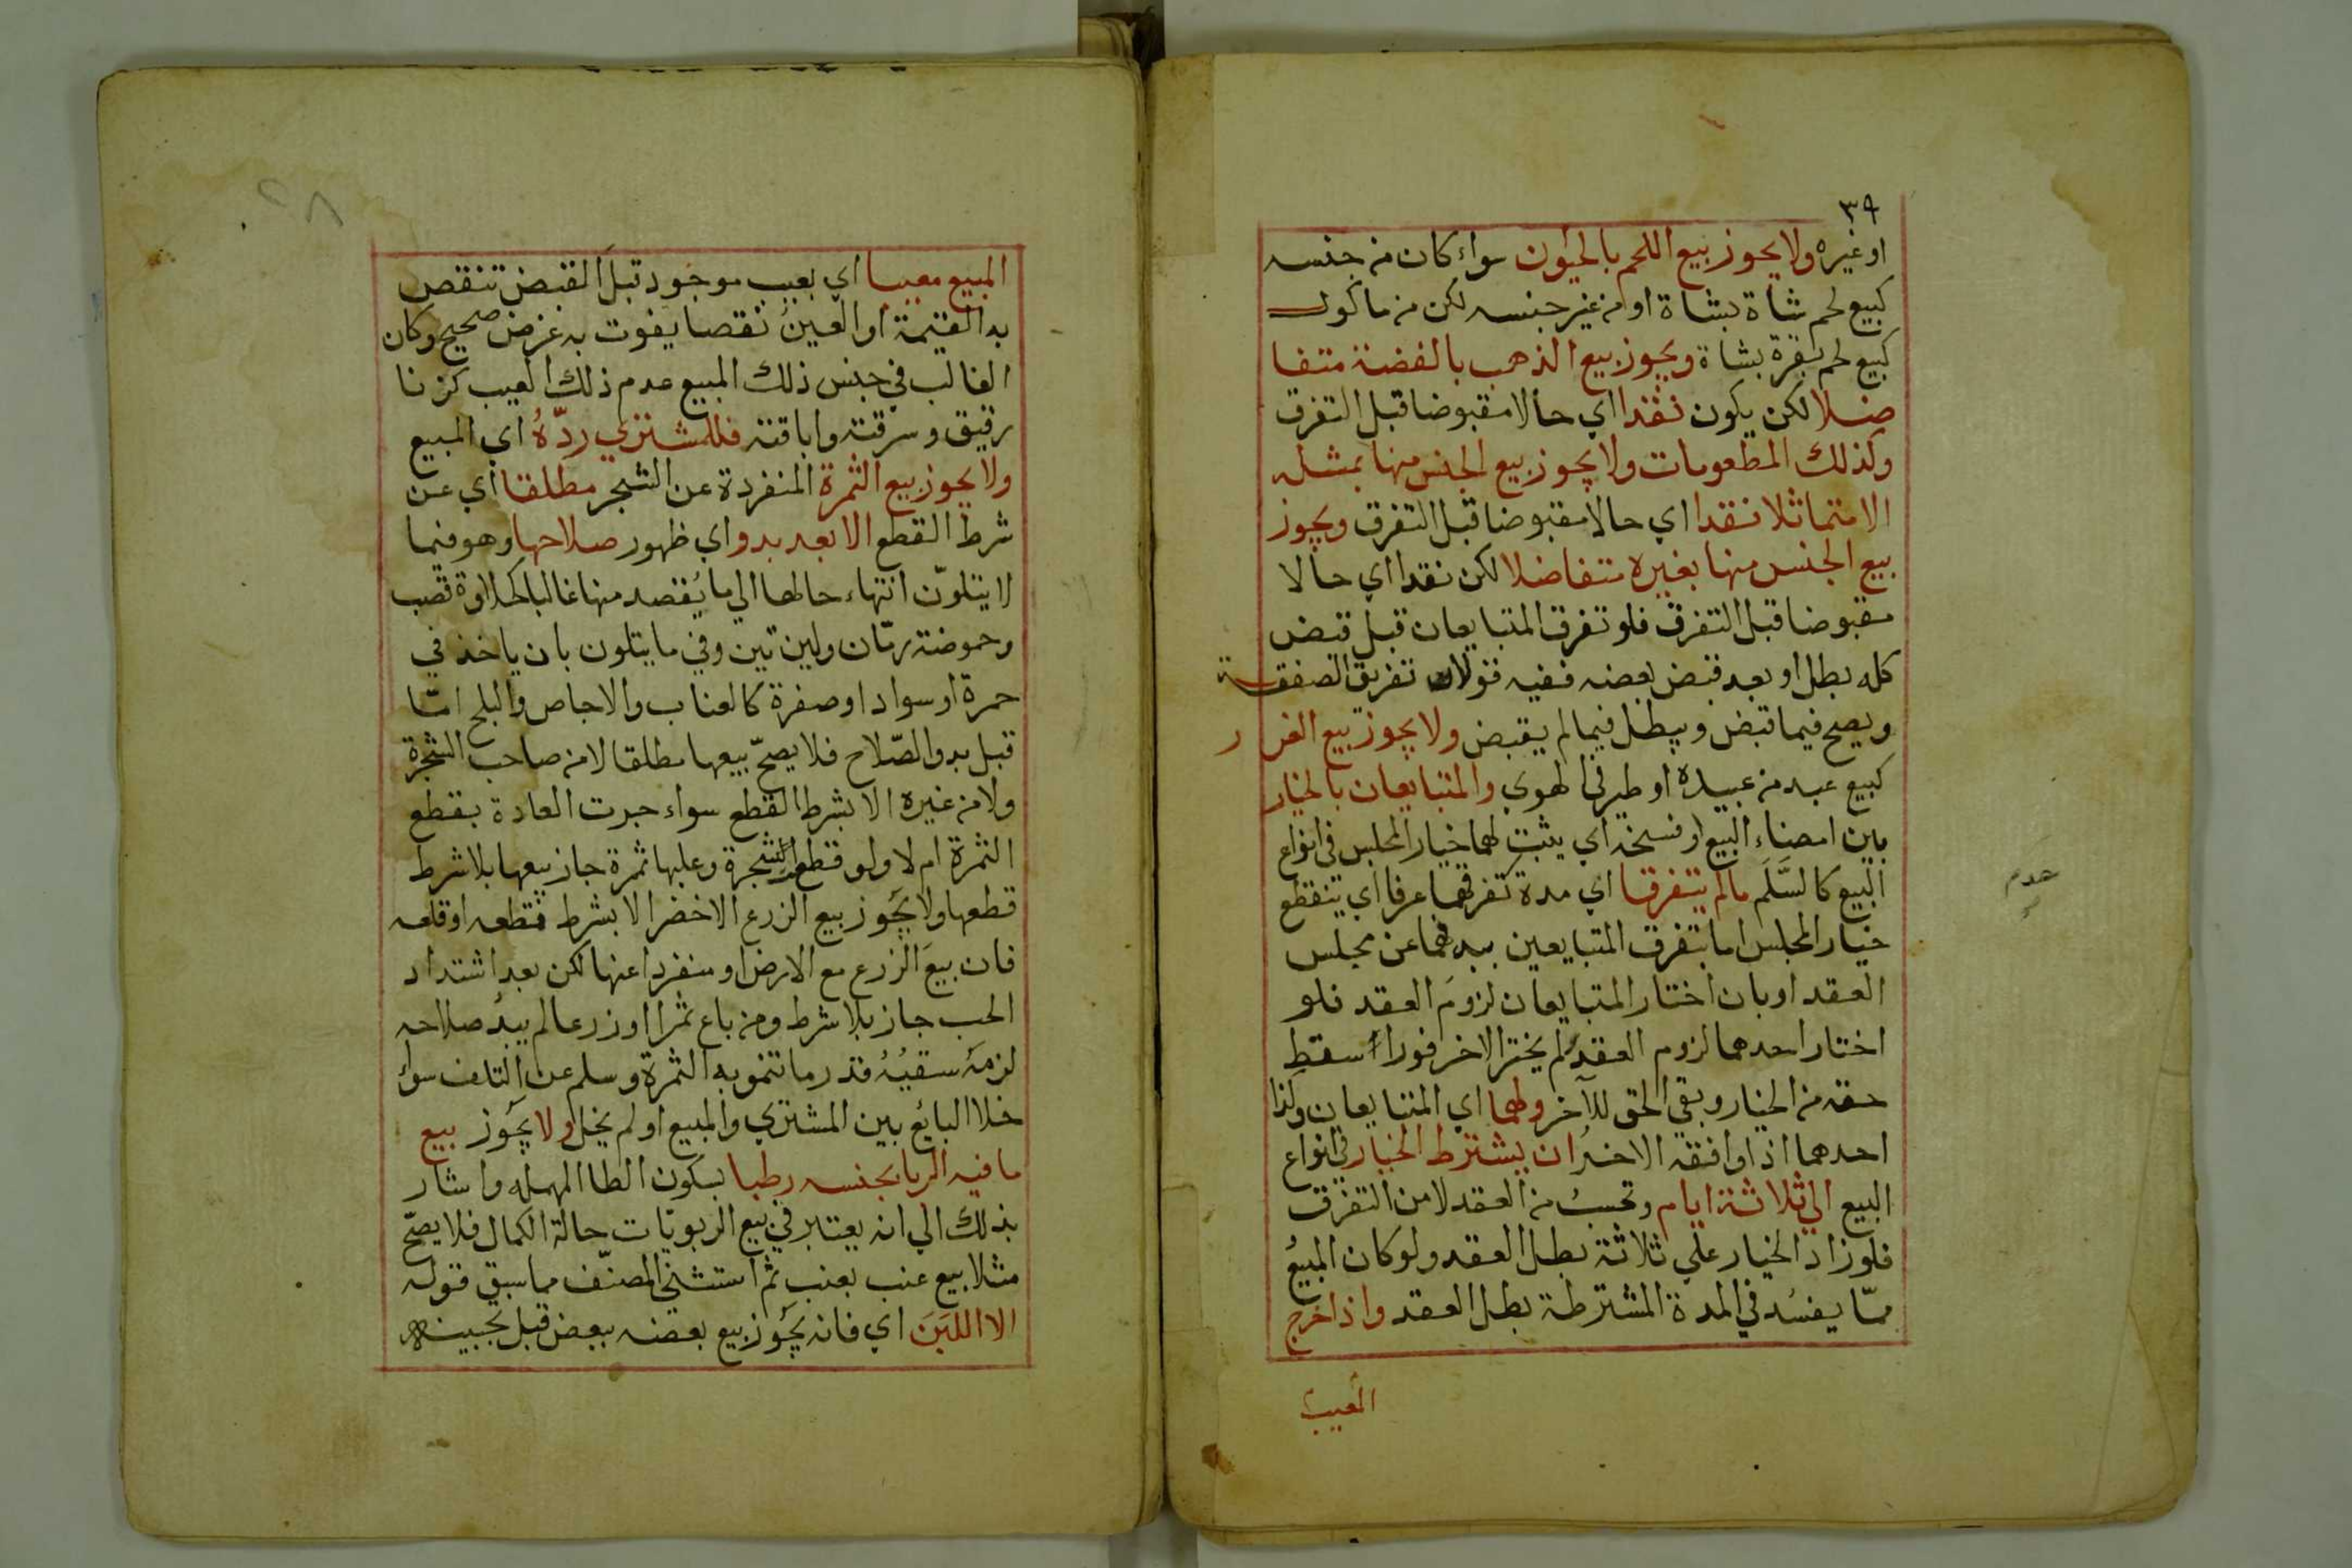 ٣٩
او غيره ولا يجوز بيع اللحم بالحيون سواء كان من جنسه
كبيع لحم شاة بشاة او من غير جنسه لكن من ماكول
كبيع لحم بقرة بشاة ويجوز بيع الذهب بالفضة متفا
ضلا لكن يكون نقدا اي حالا مقبوضا قبل التفرق
وكذلك المطعومات ولا يجوز بيع الجنس منها بمثله
الا متماثلا نقدا اي حالا مقبوضا قبل التفرق ويجوز
بيع الجنس منها بغيره متفاضلا لكن نقدا اي حالا
مقبوضا قبل التفرق فلو تفرق المتبايعان قبل قبض
كله بطل او بعد قبض بعضه ففيه قولان تفريق الصفقة
ويصح فيما قبض ويبطل فيما لم يقبض ولا يجوز بيع الغرر
كبيع عبد من عبيده او طير في الهوي والمتبايعان بالخيار
بين امضاء البيع او فسخه اي يثبت لهما خيار المجلس في انواع
البيع كالسَّلَم مالم يتفرقا اي مدة تفرقهما عرفا اي ينقطع
خيار المجلس اما بتفرق المتبايعين ببدنهما عن مجلس
العقد او بان اختار المتبايعان لزوم العقد فلو
اختار احدهما لزوم العقد ولم يختر الاخر فورا سقط
حقه من الخيار وبقي الحق للآخر ولهما اي المتبايعان وكذا
احدهما اذا وافقه الاخر ان يشترط الخيار في انواع
البيع الي ثلاثة ايام وتحسب من العقد لا من التفرق
فلو زاد الخيار علي ثلاثة بطل العقد ولو كان المبيع
ممّا يفسد في المدة المشترطة بطل العقد واذا خرج
هدم
المبيع معيبا اي بعيب موجود قبل القبض تنقص
به القيمة او العين نقصا يفوت به غرض صحيح وكان
الغالب في جنس ذلك المبيع عدم ذلك العيب كزنا
رقيق وسرقته واباقته فللمشتري ردّهُ اي المبيع
ولا يجوز بيع الثمرة المنفردة عن الشجر مطلقا اي عن
شرط القطع الا بعد بدو اي ظهور صلاحها وهو فيما
لا يتلوّن انتهاء حالها الي ما يُقصد منها غالبا كحلاوة قصب
وحموضة رمّان ولين تين وفي ما يتلون بان ياخذ في
حمرة او سواد او صفرة كالعناب والاجاص والبلح امّا
قبل بدو الصّلاح فلا يصحّ بيعها مطلقا لا من صاحب الشجرة
ولا من غيره الا بشرط القطع سواء جرت العادة بقطع
الثمرة ام لا ولو قطع الشجرة وعليها ثمرة جاز بيعها بلا شرط
قطعها ولا يجوز بيع الزرع الاخضر الا بشرط قطعه او قلعه
فان بيعَ الزرع مع الارض او منفردا عنها لكن بعد اشتداد
الحب جاز بلا شرط ومن باع ثمرا او زرعا لم يبدُ صلاحه
لزمه سقيُهُ قدر ما تنمو به الثمرة وسلم عن التلف سواء
خلا البايع بين المشتري والمبيع او لم يخل ولا يجوز بيع
ما فيه الربا بجنسه رطبا بسكون الطا المهمله واشار
بذلك الي انه يعتبر في بيع الربويّات حالة الكمال فلا يصحّ
مثلا بيع عنب بعنب ثم استثني المصنّف مما سبق قوله
الا اللبَن اي فانه يجوز بيع بعضه ببعض قبل تجبينه